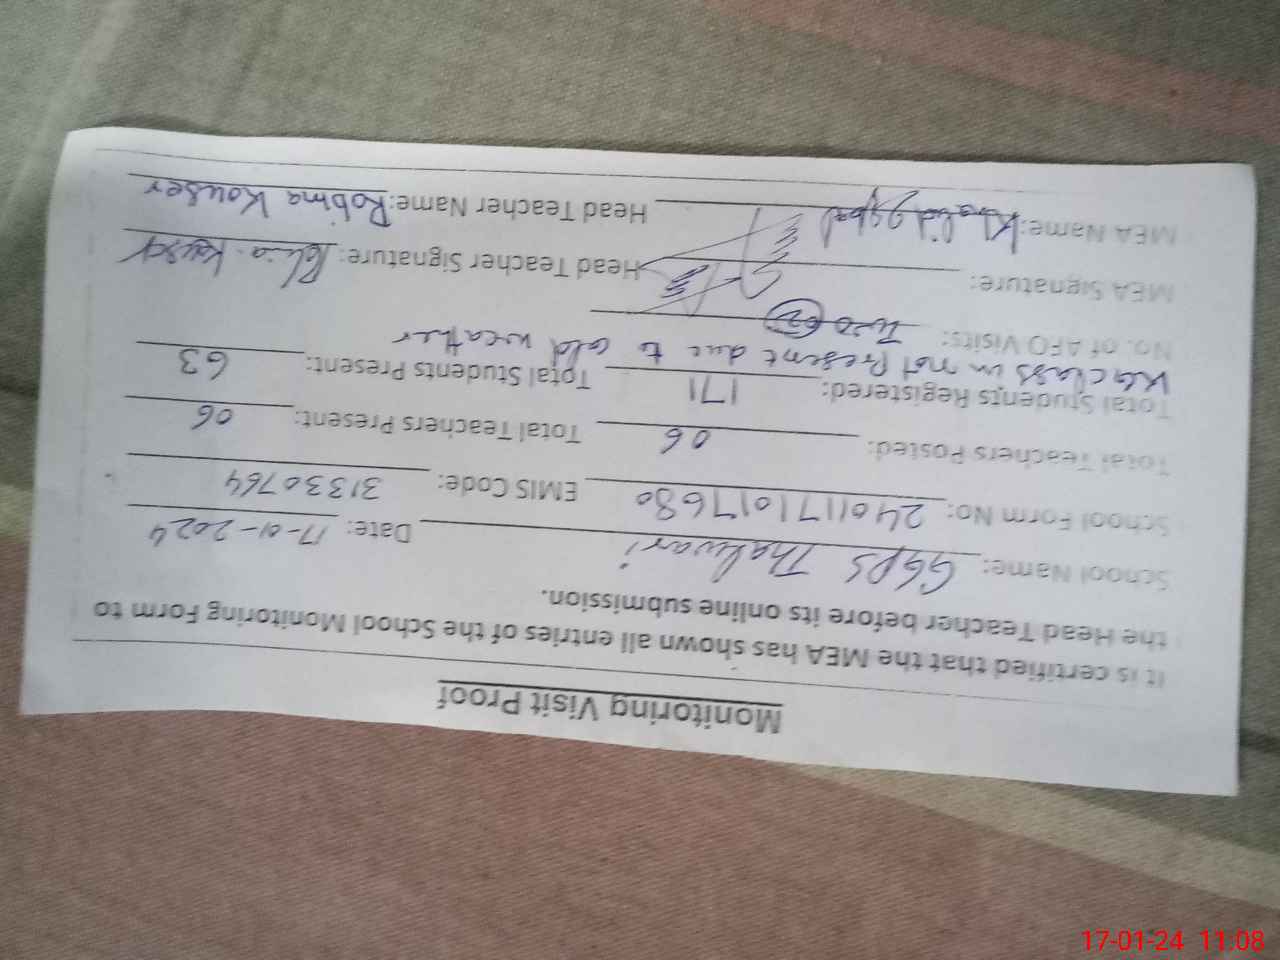 Monitoring Visit Proof
It is certified that the MEA has shown all entries of the School Monitoring Form to
the Head Teacher before its online submission.
School Name: GGPS Thalwari Date: 17-01-2024
School Form No: 2401171017680 EMIS Code: 31330764
Total Teachers Posted: 06 Total Teachers Present: 06
Total Students Registered: 171 Total Students Present: 63
class in not Present due to cold weather
No. of AFO Visits: Two 02
MEA Signature: Head Teacher Signature: Robina Kouser
MEA Name: Khalid Iqbal Head Teacher Name: Robina Kouser
17-01-24 11:08